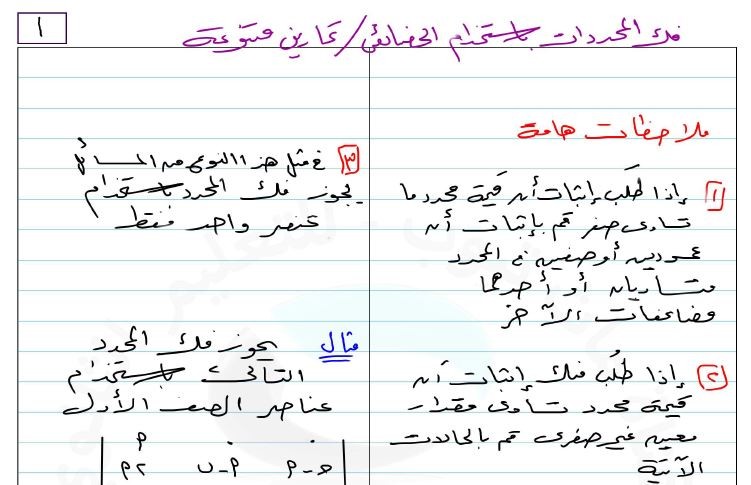 ١
فك المحددات باستخدام الخصائص / تمارين متنوعة
ملاحظات هامة
١ إذا طُلب إثبات أن قيمة محدد ما
تساوى صفر قم بإثبات أن
عمودين أو صفين فى المحدد
متساويان أو أحدهما
مضاعفات الآخر
٢ إذا طُلب منك إثبات أن
قيمة محدد تساوى مقدار
معين غير صفرى قم بالحالات
الآتية
٣ فى مثل هذا النوع من المسائل
يجوز فك المحدد باستخدام
عنصر واحد فقط
مثال يجوز فك المحدد
التالى باستخدام
عناصر الصف الأول